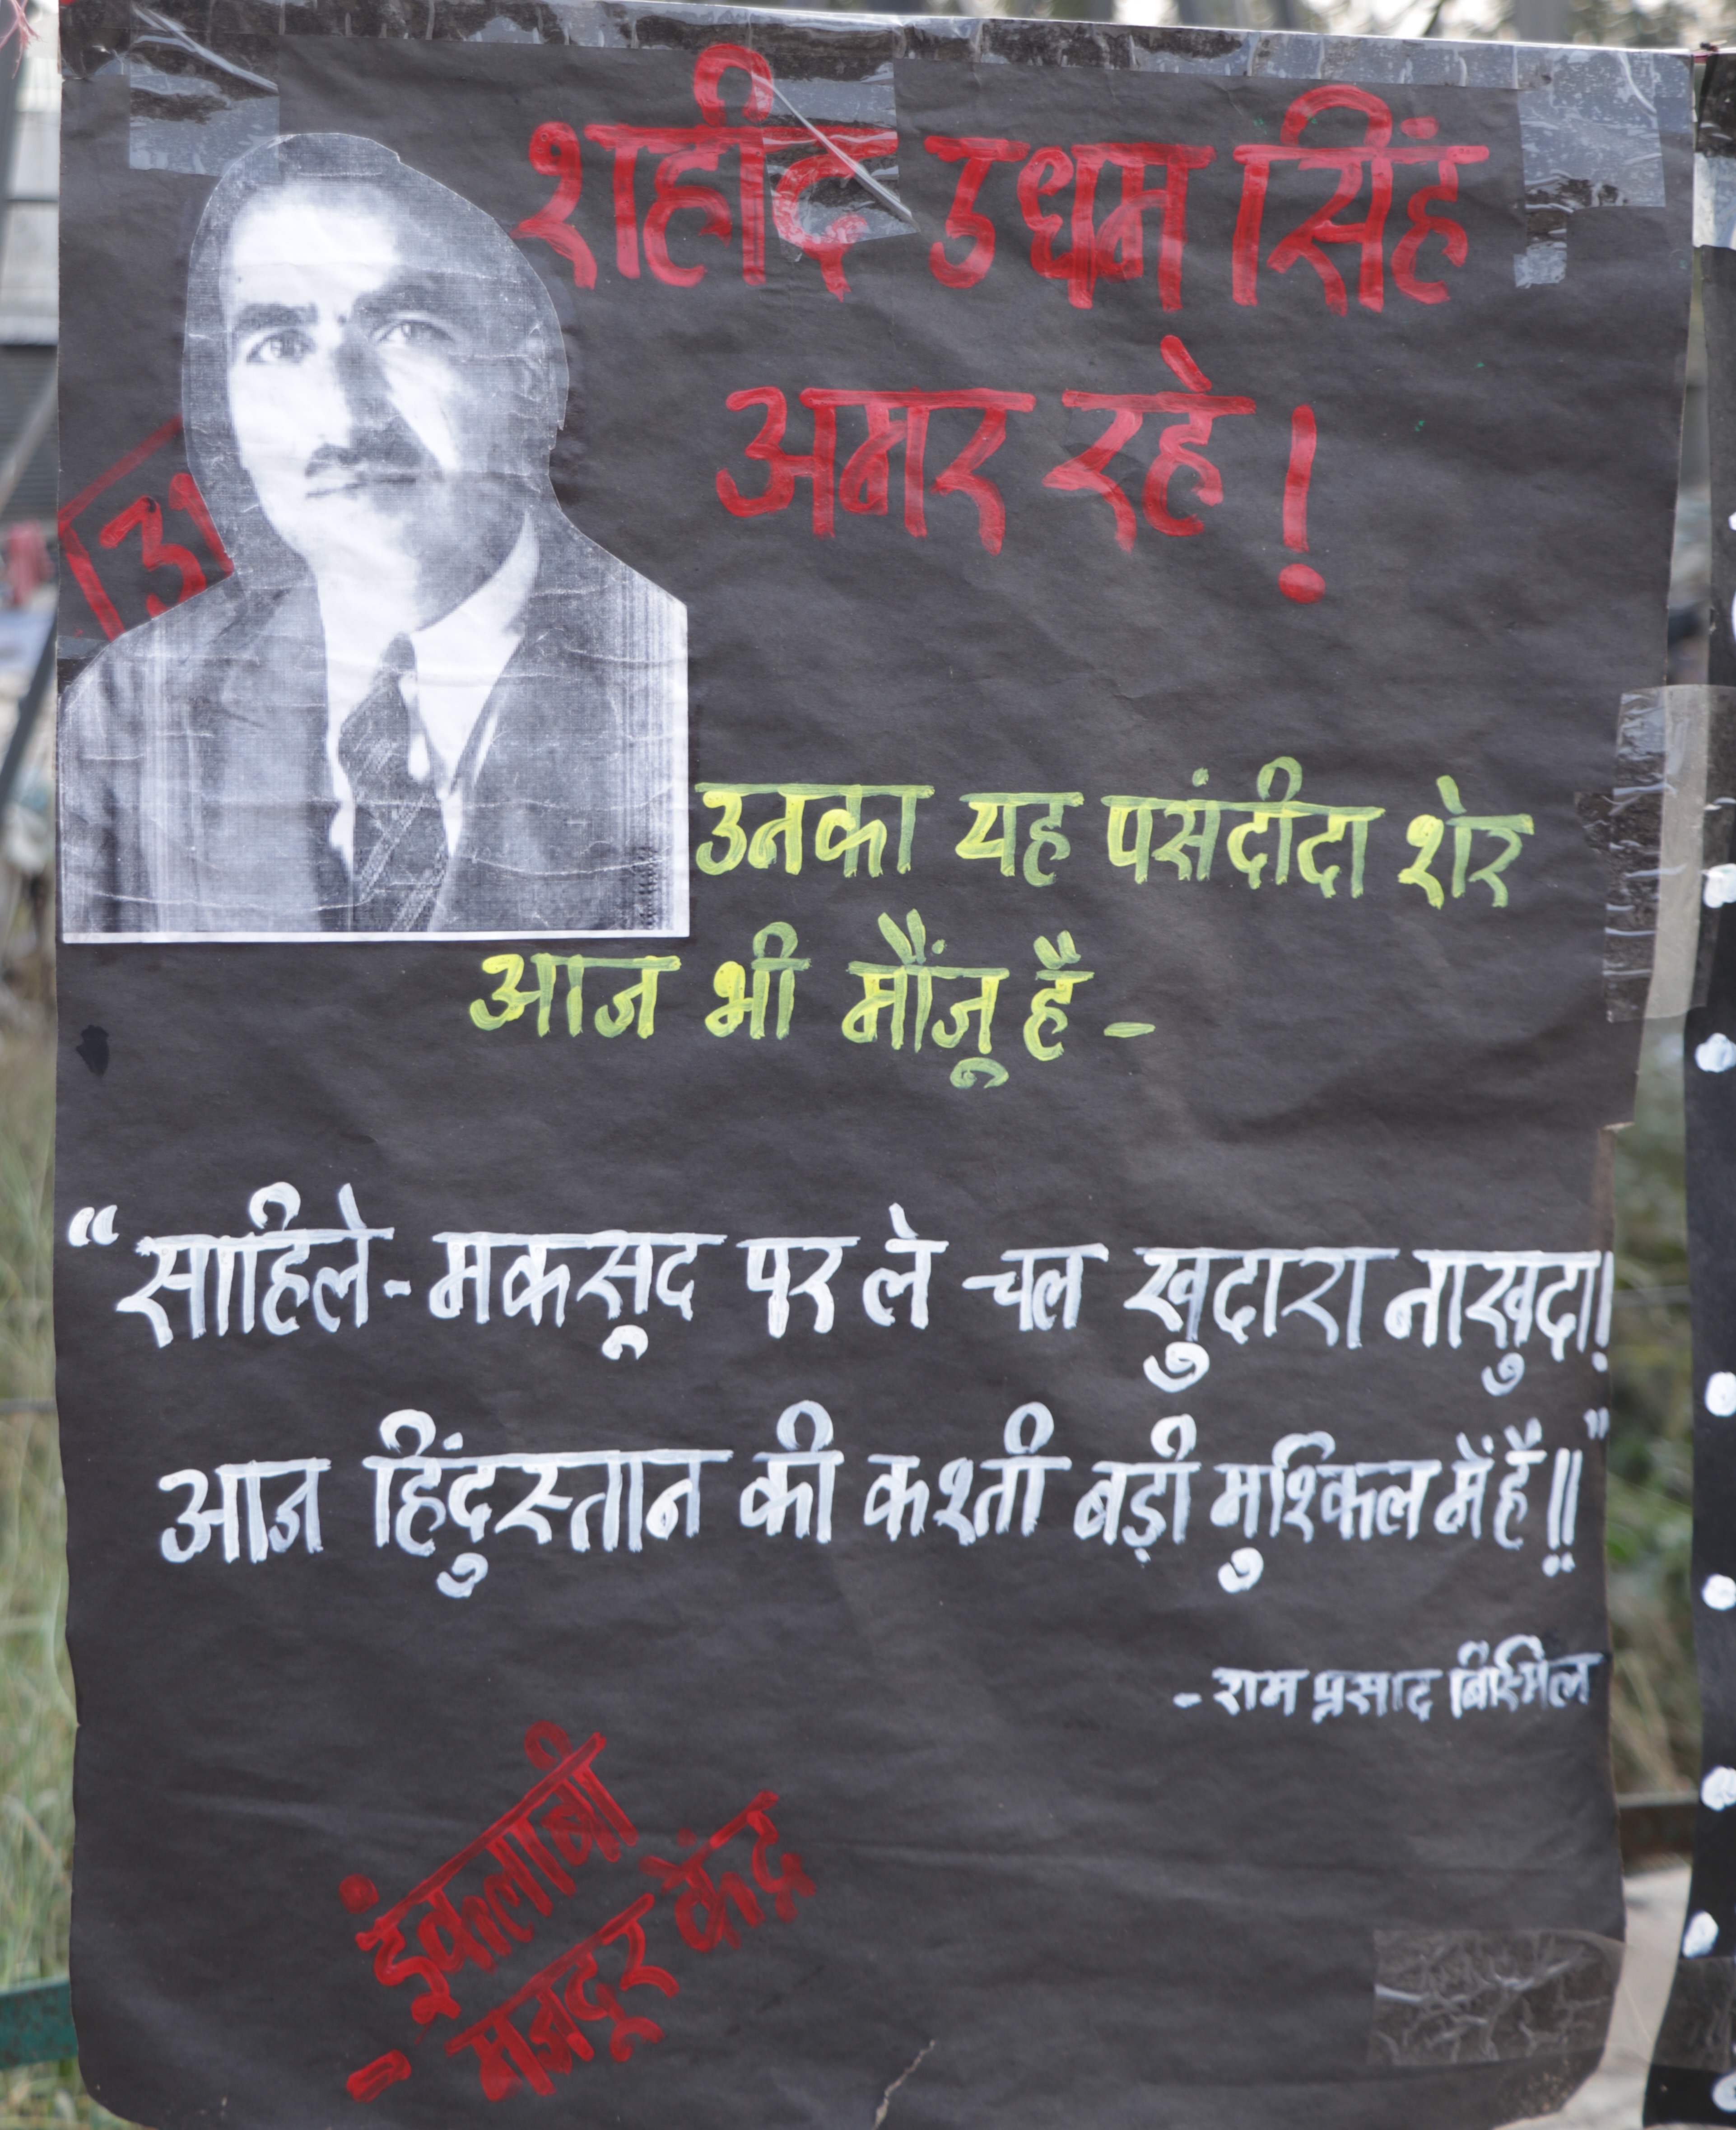 शहीद उधम सिंह
अमर रहे!
उनका यह पसंदीदा शेर
आज भी मौंजू है -
“साहिले - मकसूद पर ले चल खुदारा नाखुदा!
आज हिंदुस्तान की कश्ती बड़ी मुश्किल में है!!”
- राम प्रसाद बिस्मिल
इंकलाबी
- मजदूर केंद्र